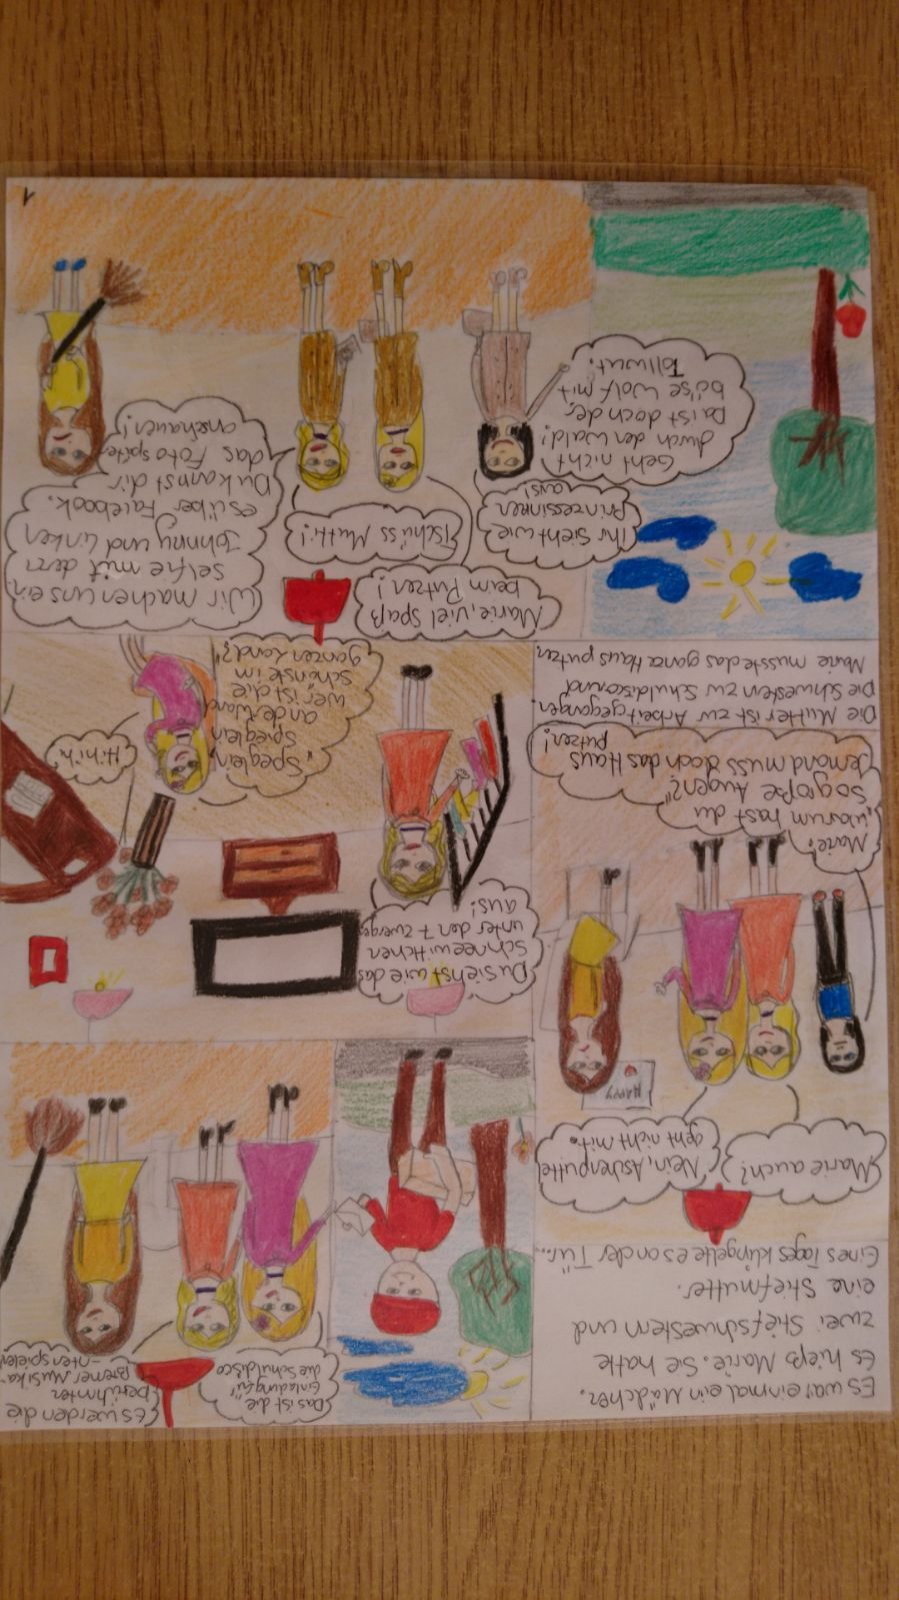 Es war einmal ein Mädchen.
Es hieß Marie. Sie hatte
zwei Stiefschwestern und
eine Stiefmutter.
Eines Tages klingelte es an der Tür...
Das ist die
Einladung für
die Schuldisco
Es werden die
berühmten
Bremer Musika-
-nten spielen
Marie auch?
Nein, Aschenputtel
geht nicht mit.
HAPPY
Marie?
"Warum hast du
so große Augen?"
Jemand muss doch das Haus
putzen!
Du siehst wie das
Schneewittchen
unter den 7 Zwergen
aus!
"Speglein,
Spieglein
an der Wand
wer ist die
schönste im
ganzen Land?"
Hihihi
Die Mutter ist zur Arbeit gegangen.
Die Schwestern zur Schuldisco und
Marie musste das ganze Haus putzen.
Ihr sieht wie
Prinzessinnen
aus!
Geht nicht
durch den Wald!
Da ist doch der
böse Wolf mit
Tollwut.
Marie, viel Spaß
beim Putzen!
Tschüss Mutti!
Wir machen uns ein
selfie mit dem
Johnny und linken
es über Facebook.
Du kannst dir
das Foto später
anschauen!
1